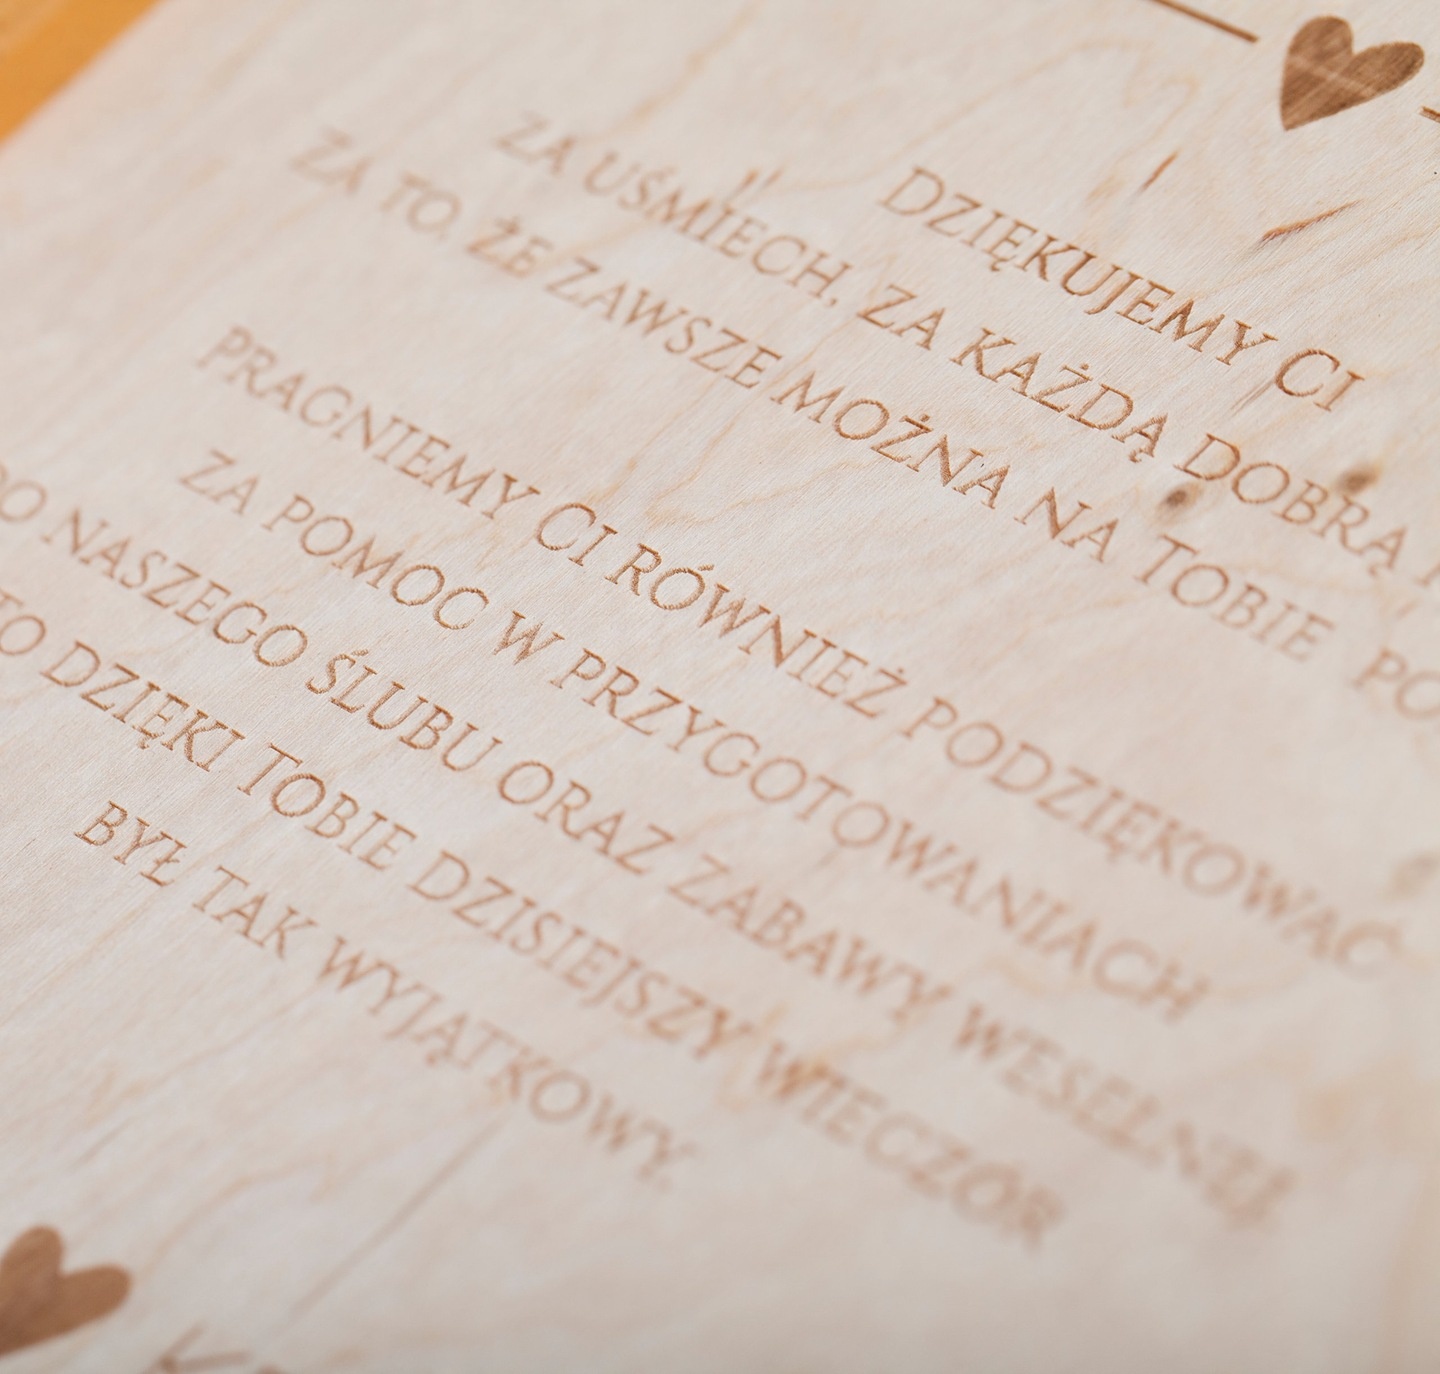 DZIĘKUJEMY CI
ZA UŚMIECH, ZA KAŻDĄ DOBRĄ
ZA TO, ŻE ZAWSZE MOŻNA NA TOBIE
PRAGNIEMY CI RÓWNIEŻ PODZIĘKOWAĆ
ZA POMOC W PRZYGOTOWANIACH
DO NASZEGO ŚLUBU ORAZ ZABAWY WESELNEJ.
TO DZIĘKI TOBIE DZISIEJSZY WIECZÓR
BYŁ TAK WYJĄTKOWY.